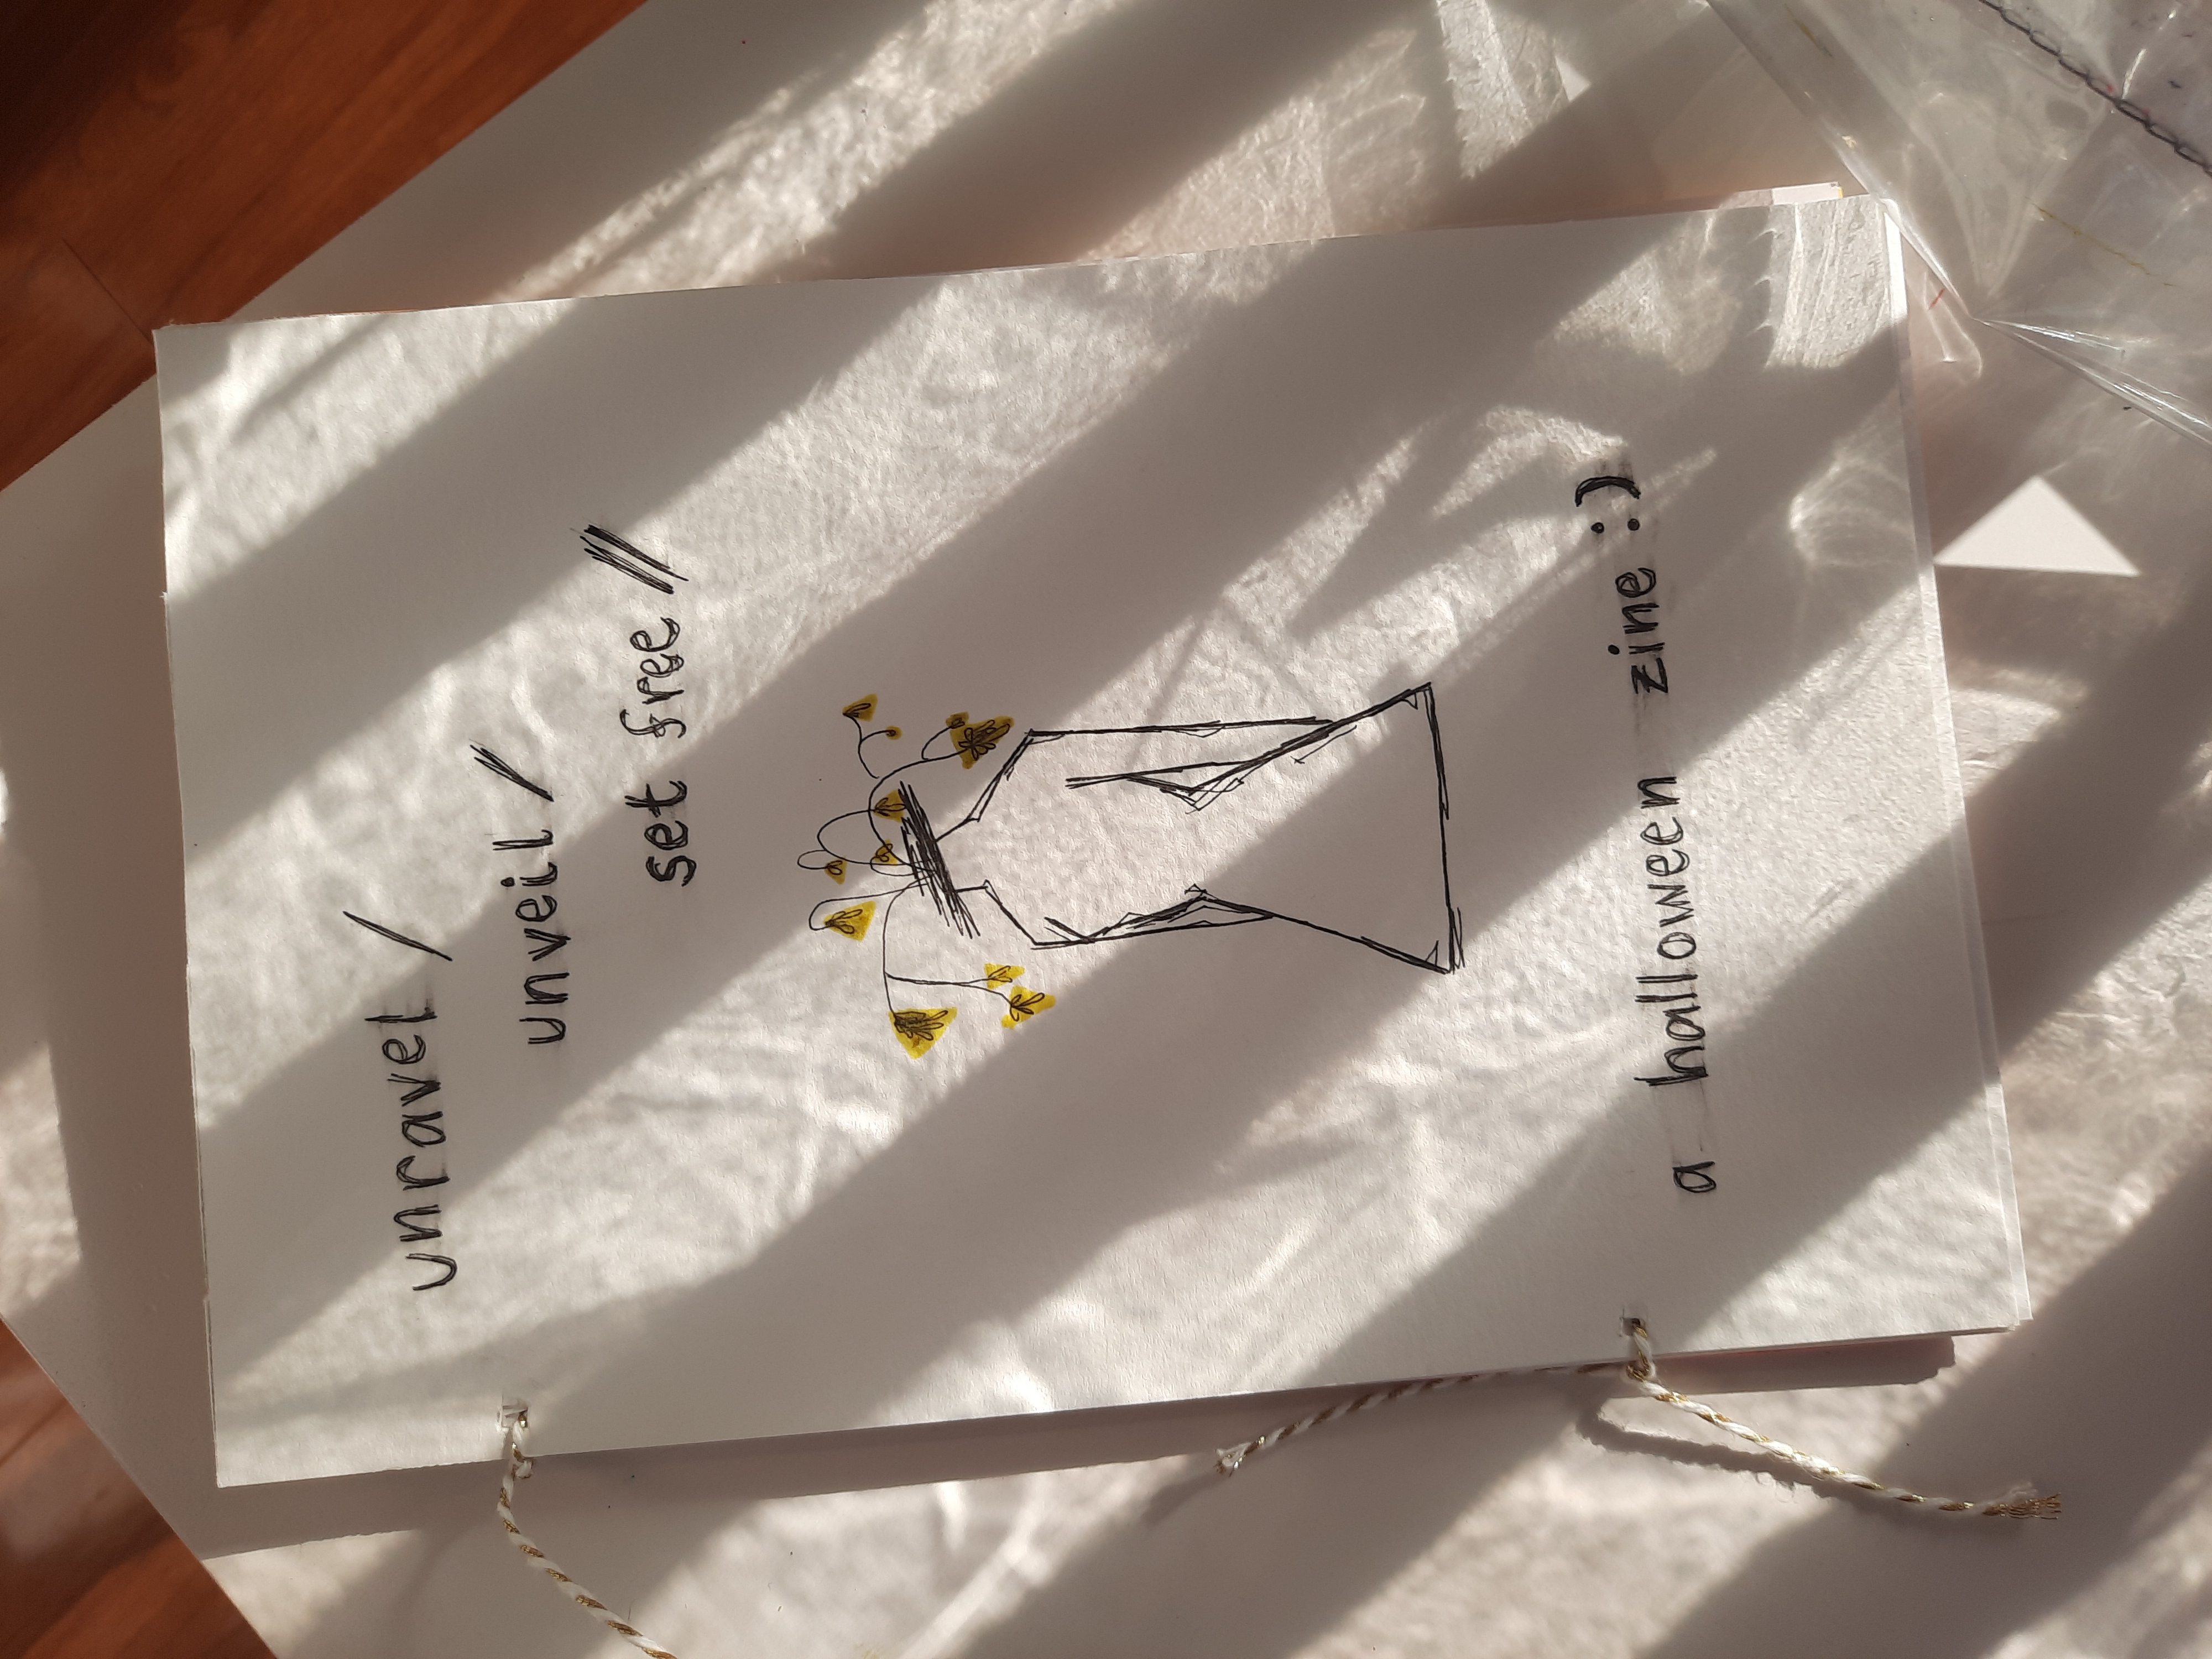 unravel /
unveil /
set free //
a halloween zine :)